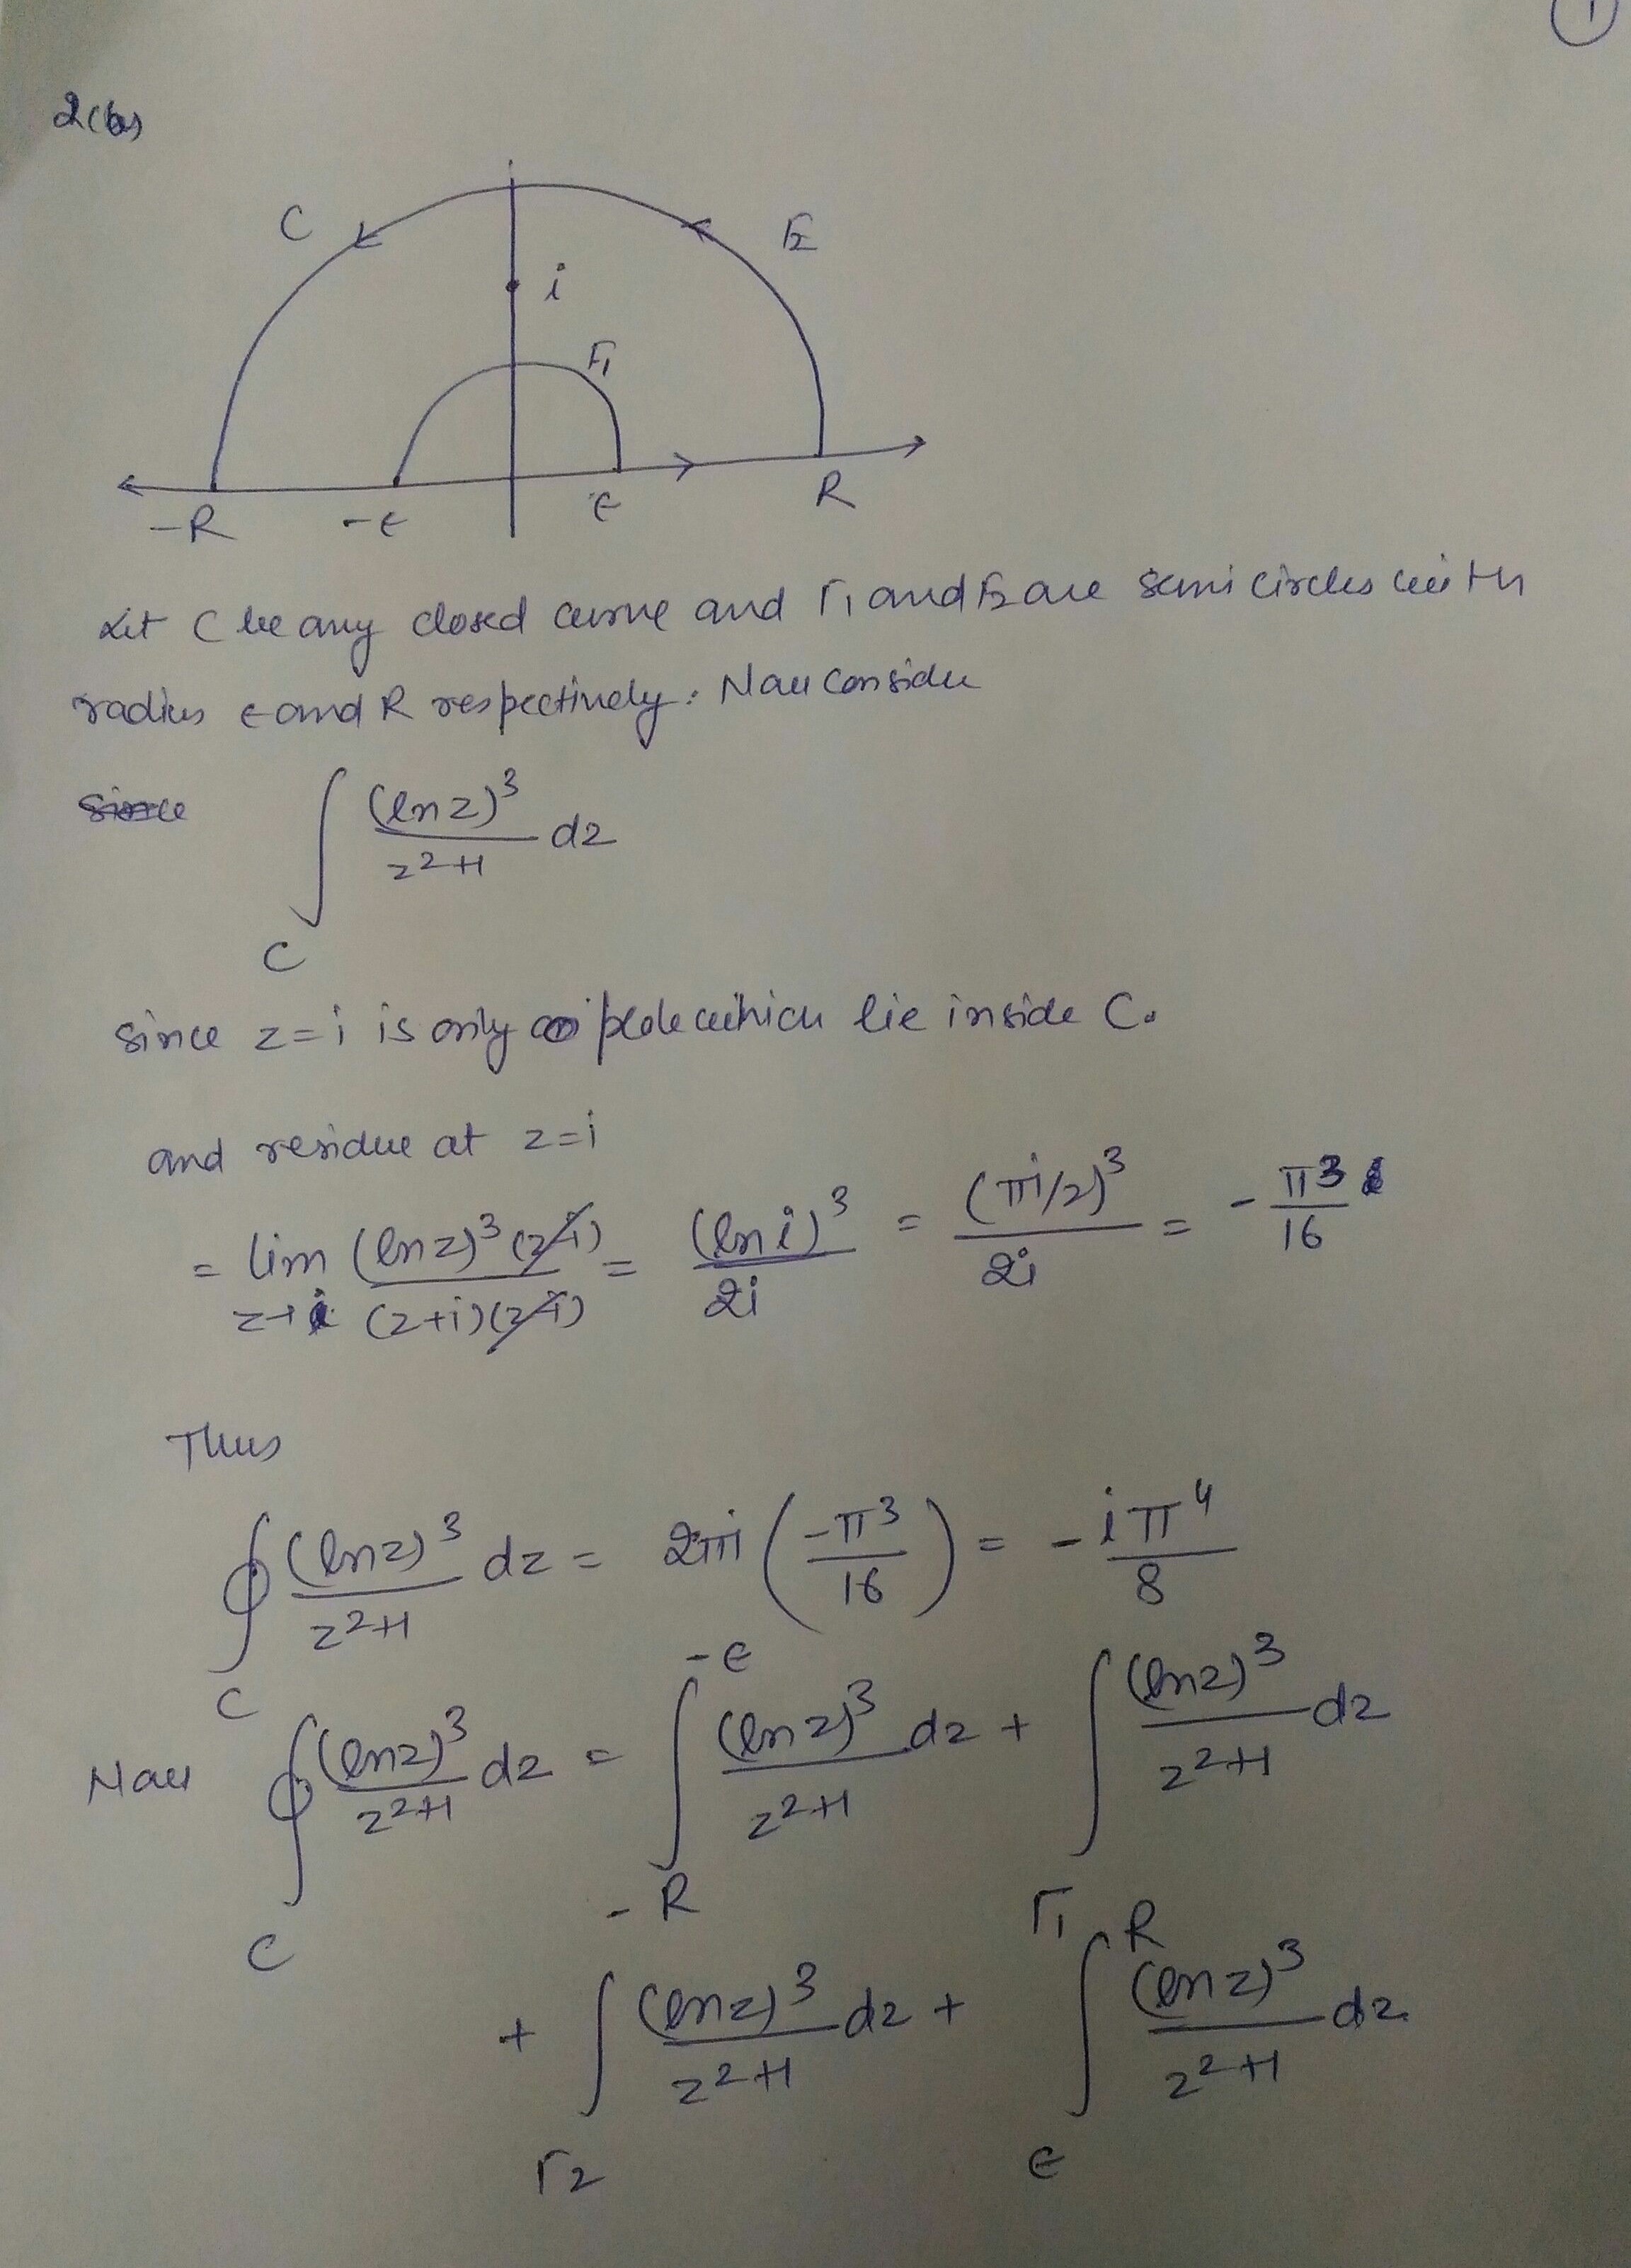 1
2(b)
C
Γ2
i
Γ1
-R
-ε
ε
R
Let C be any closed curve and Γ1 and Γ2 are semi circles with
radius ε and R respectively. Now consider
since ∫_C (ln z)^3 / (z^2+1) dz
since z=i is only pole which lie inside C.
and residue at z=i
= lim_{z→i} (ln z)^3 (z-i) / (z+i)(z-i) = (ln i)^3 / 2i = (πi/2)^3 / 2i = - π^3 / 16
Thus
∮_C (ln z)^3 / (z^2+1) dz = 2πi (-π^3 / 16) = - iπ^4 / 8
Now ∮_C (ln z)^3 / (z^2+1) dz = ∫_{-R}^{-ε} (ln z)^3 / (z^2+1) dz + ∫_{Γ1} (ln z)^3 / (z^2+1) dz
+ ∫_{Γ2} (ln z)^3 / (z^2+1) dz + ∫_ε^R (ln z)^3 / (z^2+1) dz